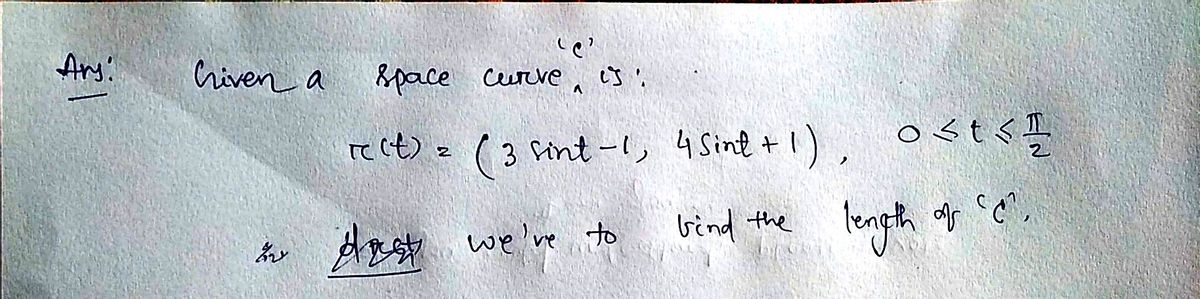 Ans: Given a space curve 'C' is:
r(t) = (3 sint - 1, 4 sint + 1), 0 ≤ t ≤ π/2
we've to find the length of 'C'.